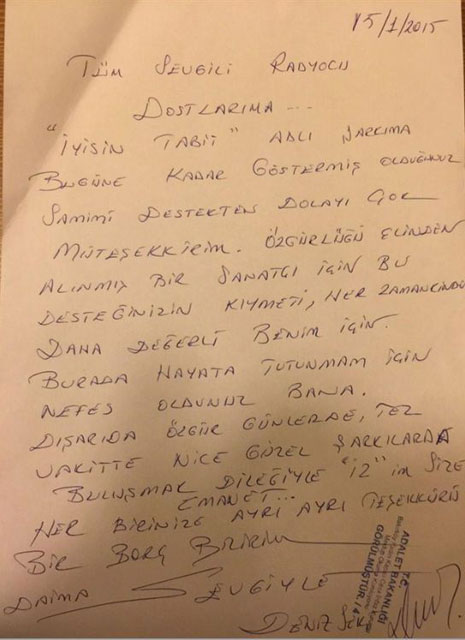 15/1/2015
TÜM SEVGİLİ RADYOCU
DOSTLARIMA ...
"İYİSİN TABİİ" ADLI ŞARKIMA
BUGÜNE KADAR GÖSTERMİŞ OLDUĞUNUZ
SAMİMİ DESTEKTEN DOLAYI ÇOK
MÜTEŞEKKİRİM. ÖZGÜRLÜĞÜ ELİNDEN
ALINMIŞ BİR SANATÇI İÇİN BU
DESTEĞİNİZİN KIYMETİ, HER ZAMANKİNDEN
DAHA DEĞERLİ BENİM İÇİN.
BURADA HAYATA TUTUNMAM İÇİN
NEFES OLDUNUZ BANA.
DIŞARIDA ÖZGÜR GÜNLERDE, TEZ
VAKİTTE NİCE GÜZEL ŞARKILARDA
BULUŞMAK DİLEĞİYLE "İZ"İM SİZE
EMANET...
HER BİRİNİZE AYRI AYRI TEŞEKKÜRÜ
BİR BORÇ BİLİRİM
DAİMA SEVGİYLE
DENİZ SEKİ
T.C.
ADALET BAKANLIĞI
GÖRÜLMÜŞTÜR